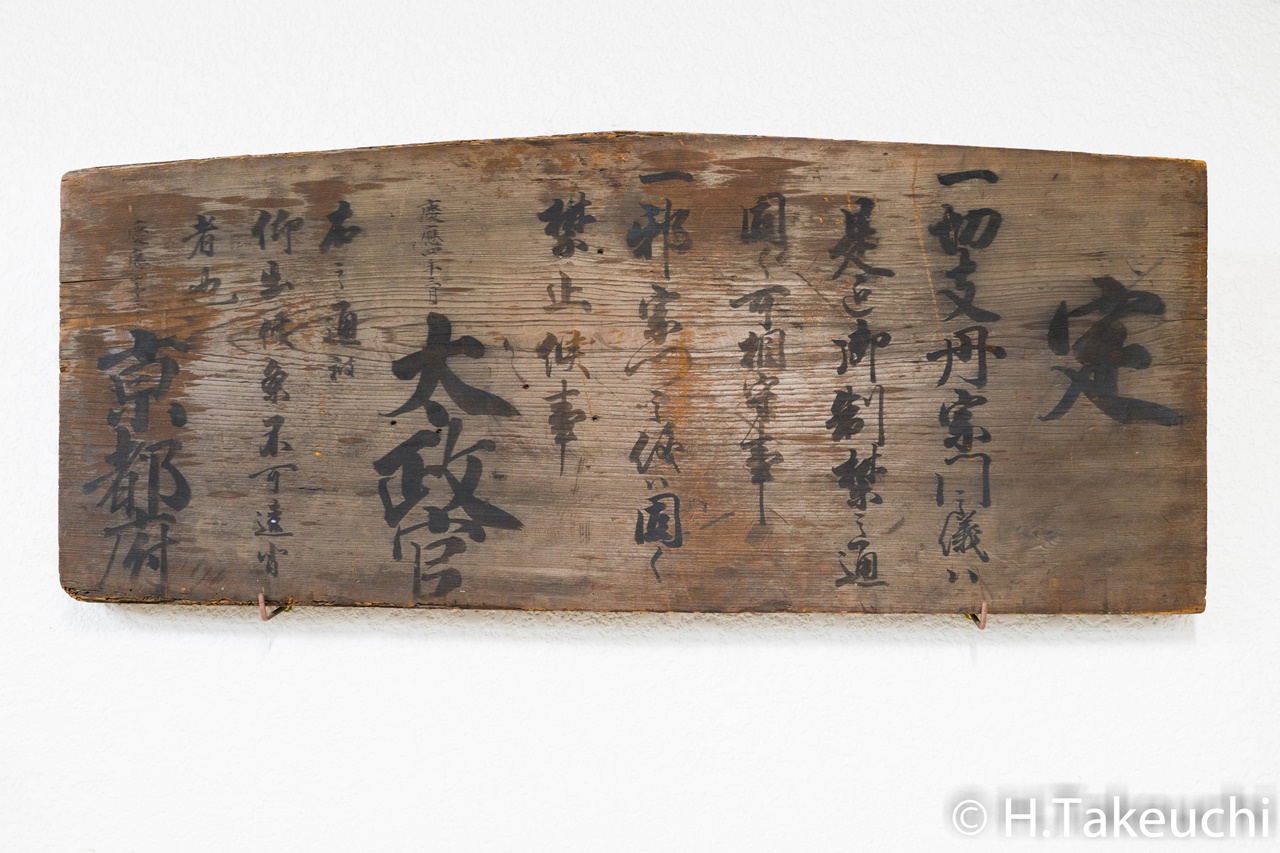 定
一切支丹宗門之儀ハ
是迄御制禁之通
固く可相守事
一邪宗門之儀ハ固く
禁止候事
慶應四年三月
太政官
右之通被
仰出候条不可違背
者也
京都府
© H.Takeuchi